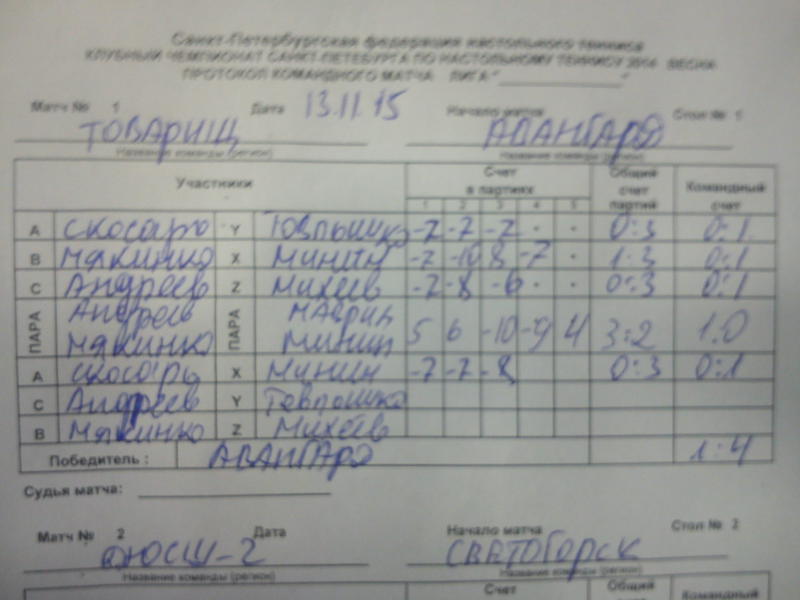 Санкт-Петербургская федерация настольного тенниса
КЛУБНЫЙ ЧЕМПИОНАТ САНКТ-ПЕТЕБУРГА ПО НАСТОЛЬНОМУ ТЕННИСУ ВЕСНА
ПРОТОКОЛ КОМАНДНОГО МАТЧА ЛИГА " "
Матч № 1 Дата 13.11.15 Начало матча Стол № 1
ТОВАРИЩ АВАНГАРД
Название команды (регион) Название команды (регион)
Участники Счет в партиях Общий счет партий Командный счет
1 2 3 4 5
A Y -7 -7 -7 · · 0:3 0:1
B Мякинко X Минин -7 -10 8 -7 · 1:3 0:1
C Андреев Z Михеев -7 -8 -6 · · 0:3 0:1
ПАРА Андреев Мякинко ПАРА Минин 5 6 -10 -9 4 3:2 1:0
A X Минин -7 -7 -8 0:3 0:1
C Андреев Y
B Мякинко Z Михеев
Победитель : АВАНГАРД 1:4
Судья матча:
Матч № 2 Дата Начало матча Стол № 2
ДЮСШ-2 СВЕТОГОРСК
Название команды (регион) Название команды (регион)
Счет Общий Командный